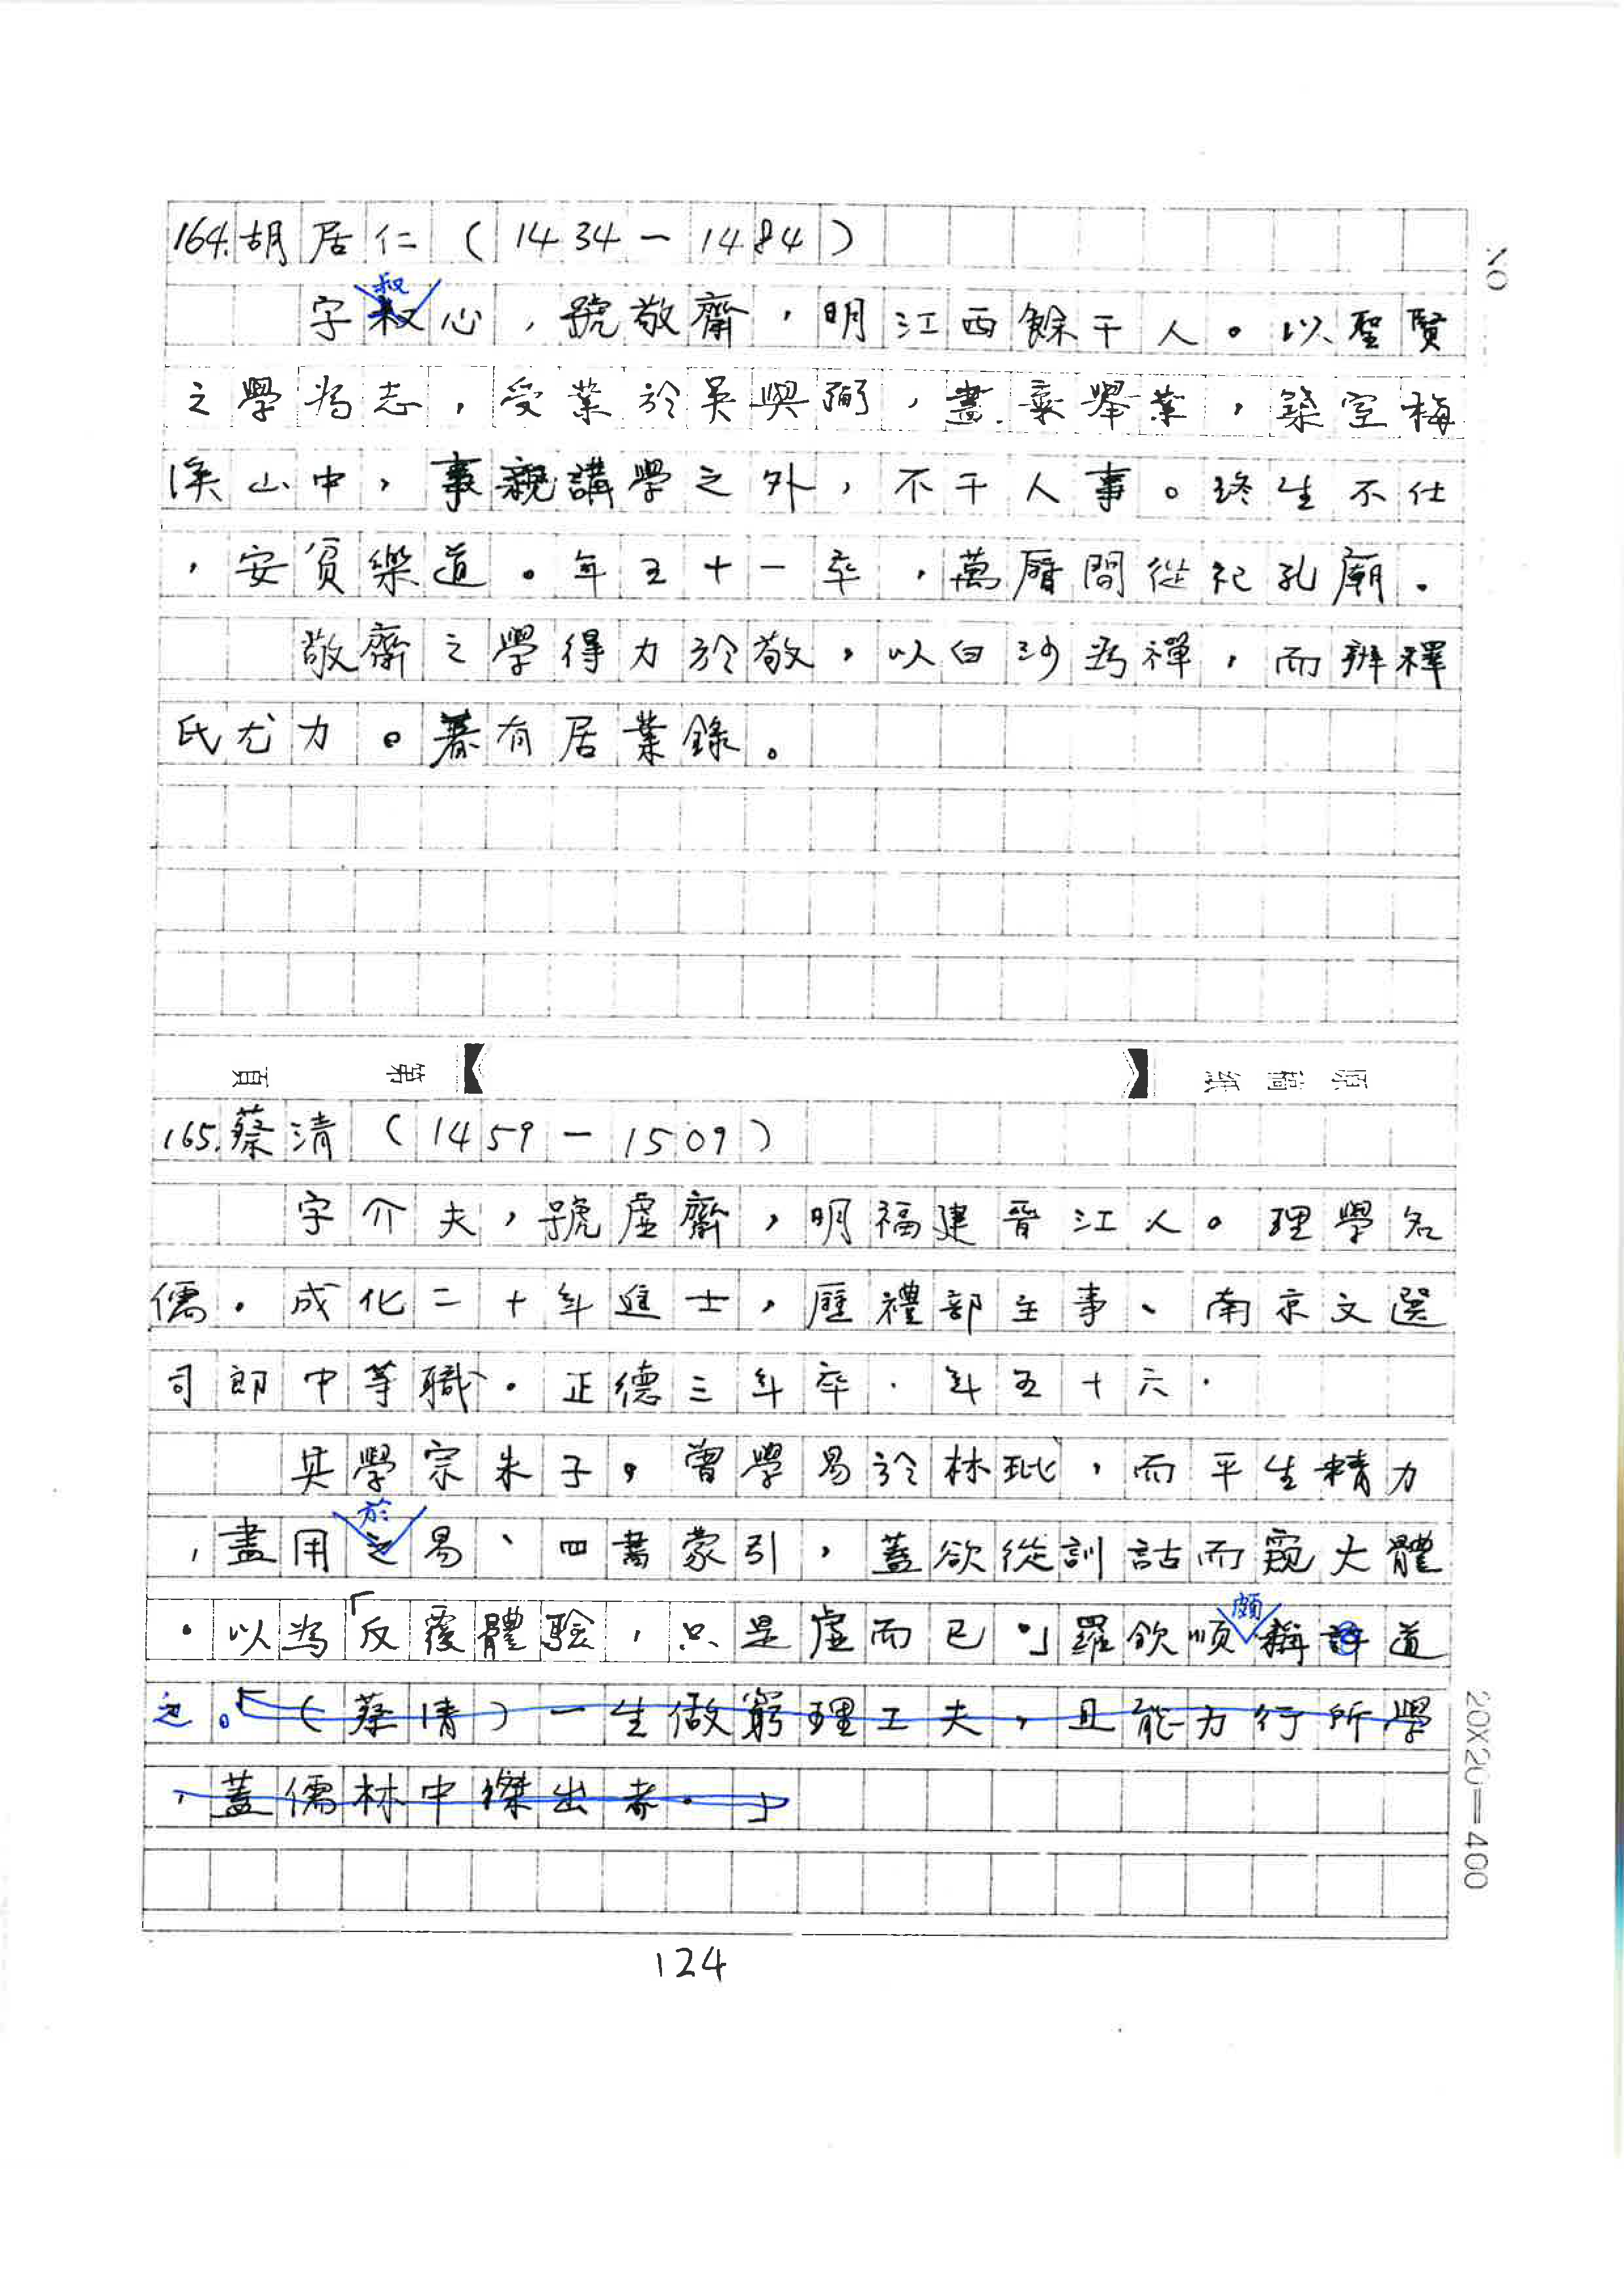 164.胡居仁（1434－1484）
叔
字叔心，號敬齋，明江西餘干人。以聖賢
之學為志，受業於吳與弼，盡棄舉業，築室梅
溪山中，事親講學之外，不干人事。終生不仕
，安貧樂道。年五十一卒，萬曆間從祀孔廟。
敬齋之學得力於敬，以白沙為禪，而辨釋
氏尤力。著有居業錄。
NO
頁 第【 】紙稿原
165.蔡清（1459－1509）
字介夫，號虛齋，明福建晉江人。理學名
儒。成化二十年進士，歷禮部主事、南京文選
司郎中等職。正德三年卒．年五十六．
其學宗朱子，曾學易於林玭，而平生精力
於
，盡用之易、四書蒙引，蓋欲從訓詁而窺大體
頗
。以為「反覆體驗，只是虛而已」羅欽順稱許道
之。「（蔡清）一生做窮理工夫，且能力行所學
，蓋儒林中傑出者。」
20X20=400
124